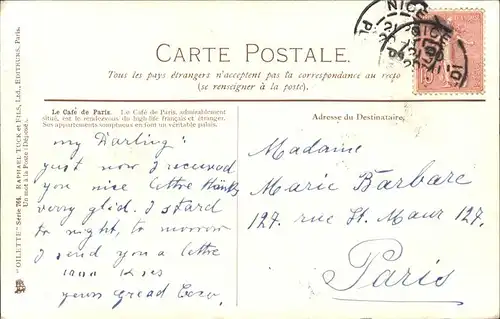 NICE
CARTE POSTALE.
Tous les pays étrangers n'acceptent pas la correspondance au recto
(se renseigner à la poste).
"OILETTE" Série 764. RAPHAEL TUCK et FILS, Ltd., EDITEURS, Paris.
Un mot à la Poste (Déposé).
Le Café de Paris. Le Café de Paris, admirablement
situé, est le rendezvous du high-life français et étranger.
Ses appartements somptueux en font un véritable palais.
my Darling:
just now I receved
you nice lettre thanks
very glid. I stard
to night, to morrow
I send you a lettre
1000 Kises
yours gread Coco.
Adresse du Destinataire,
Madame
Marie Barbare
127. rue St. Maur 127.
Paris